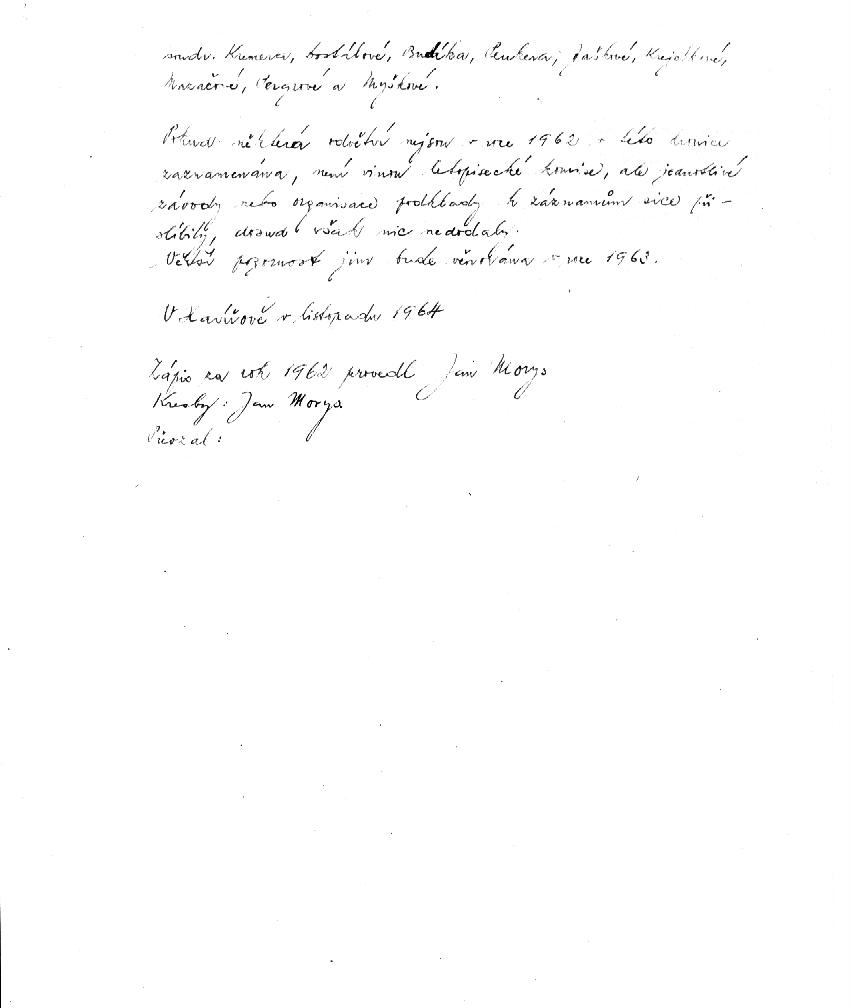 soudr. Kremera, Dostálové, Budíka, Penkera, Jaškové, Krejčíkové,
a Myškové.
Pokud některá odvětví nejsou v roce 1962 v této kronice
zaznamenána, není vinou letopisecké komise, ale jednotlivé
závody nebo organisace podklady k záznamům sice při-
slíbily, dosud však nic nedodaly.
Větší pozornost jim bude věnována v roce 1963.
V Havířově v listopadu 1964
Zápis za rok 1962 provedl Jan Morys
Kresby: Jan Morys
Psal: